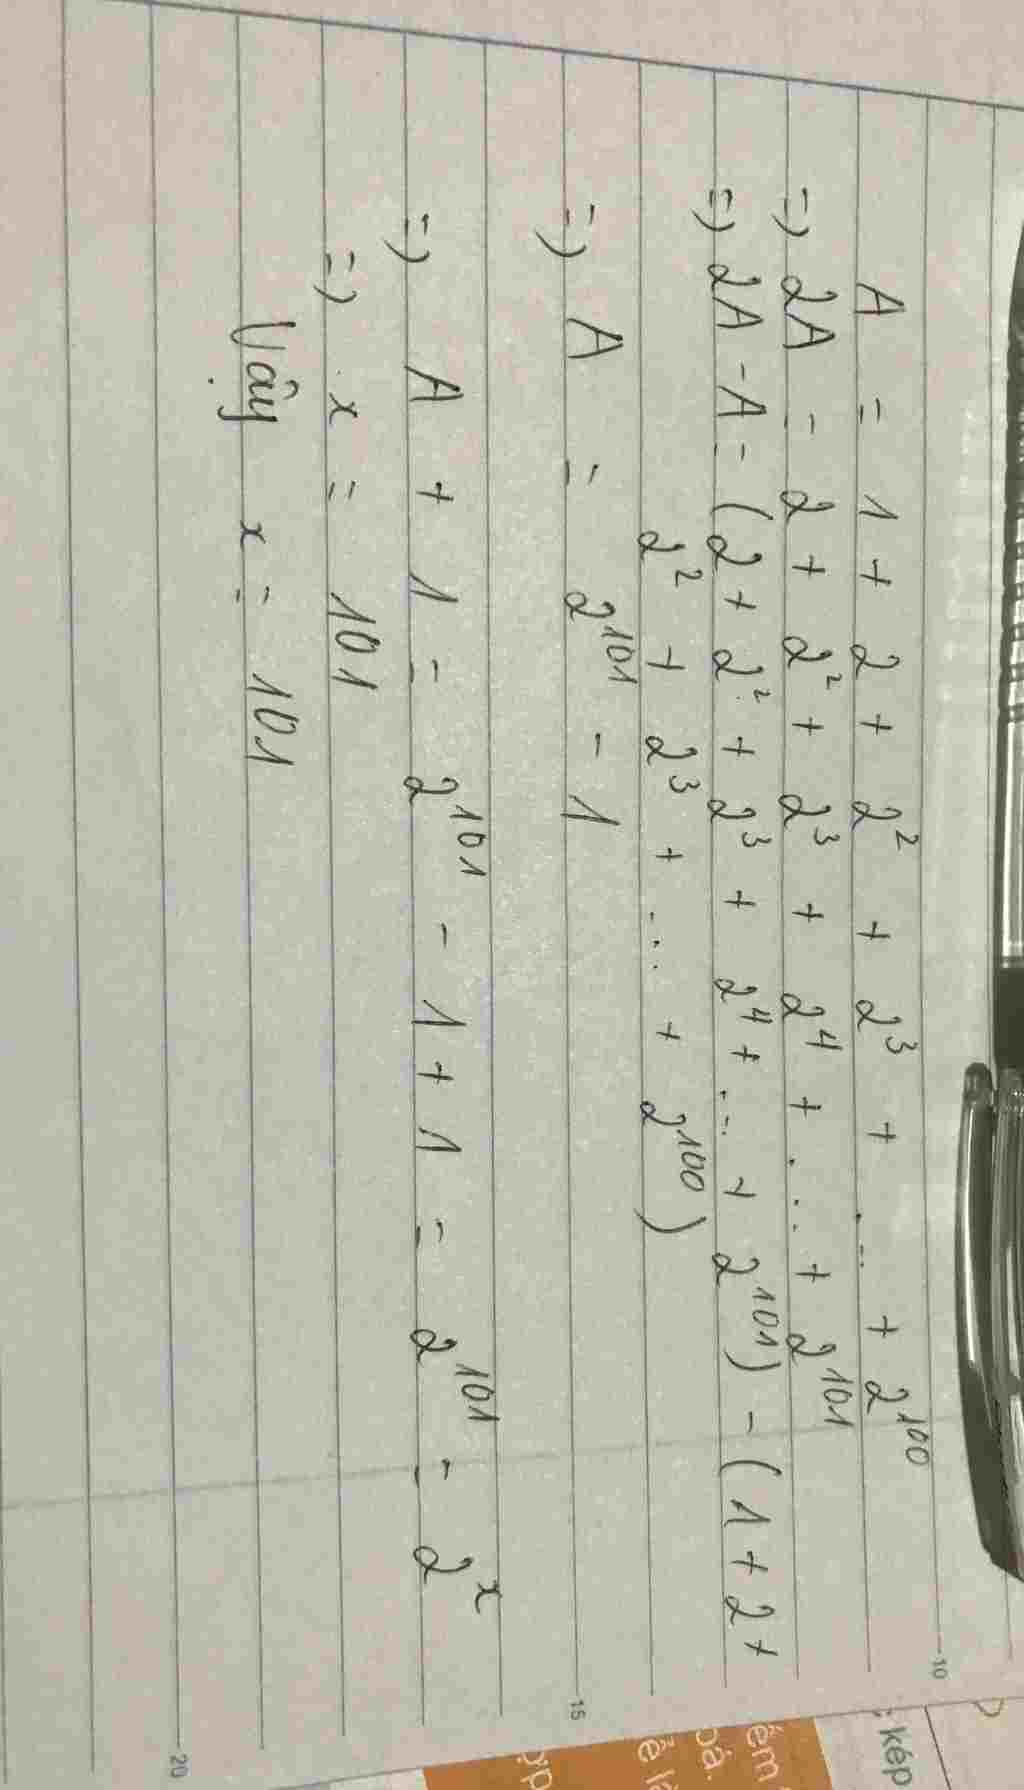 A = 1 + 2 + 2² + 2³ + ... + 2¹⁰⁰
=) 2A = 2 + 2² + 2³ + 2⁴ + ... + 2¹⁰¹
=) 2A - A = (2 + 2² + 2³ + 2⁴ + ... + 2¹⁰¹) - (1 + 2 +
2² + 2³ + ... + 2¹⁰⁰)
=) A = 2¹⁰¹ - 1
=) A + 1 = 2¹⁰¹ - 1 + 1 = 2¹⁰¹ = 2ˣ
=) x = 101
Vậy x = 101
10
15
20
kép